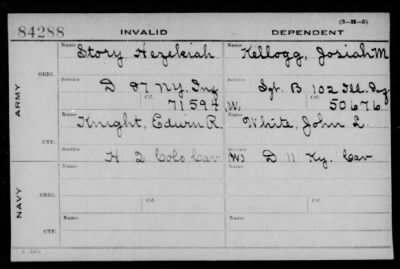 (3-H-5)
84288 INVALID DEPENDENT
Name Story Hezekiah Name Kellogg, Josiah M
ORIG.
ARMY
Service D 87 N.Y. Inf Service Sgt. B 102 Ill. Inf.
Ctf. 71594 W. Ctf. 50676
Name Knight, Edwin R. Name White, John L.
CTF.
Service H 2 Colo Cav Service (W) D 11 Ky. Cav
NAVY
Name Name
ORIG.
Service Ctf. Service Ctf.
Name Name
CTF.
Service Service